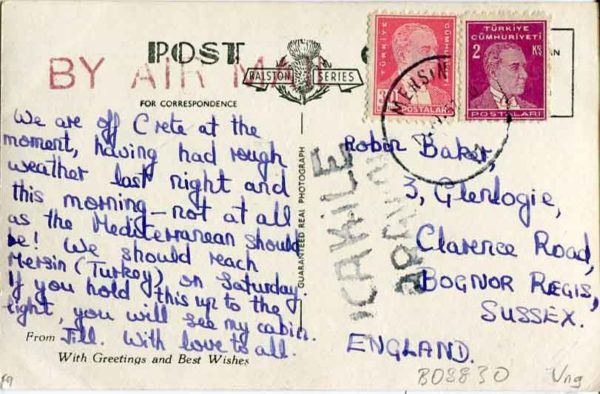 POST
BY AIR MAIL
RALSTON SERIES
FOR CORRESPONDENCE
We are off Crete at the
moment, having had rough
weather last night and
this morning – not at all
as the Mediterranean should
be! We should reach
Mersin (Turkey) on Saturday.
If you hold this up to the
light, you will see my cabin.
From Jill. With love to all.
With Greetings and Best Wishes
GUARANTEED REAL PHOTOGRAPH
TÜRKİYE
POSTALARI
TÜRKİYE
CÜMHURİYETİ
2 KŞ
POSTALARI
MERSIN
UÇAK İLE
Robin Baker,
3, Glenlogie,
Clarence Road,
BOGNOR REGIS,
SUSSEX.
ENGLAND.
BOSS30
Vng